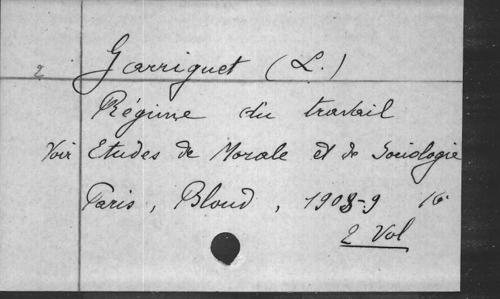 2 Garriguet (L.)
Régime du travail
Voir Etudes de Morale et de Sociologie
Paris, Bloud, 1908-9 16°
2 Vol